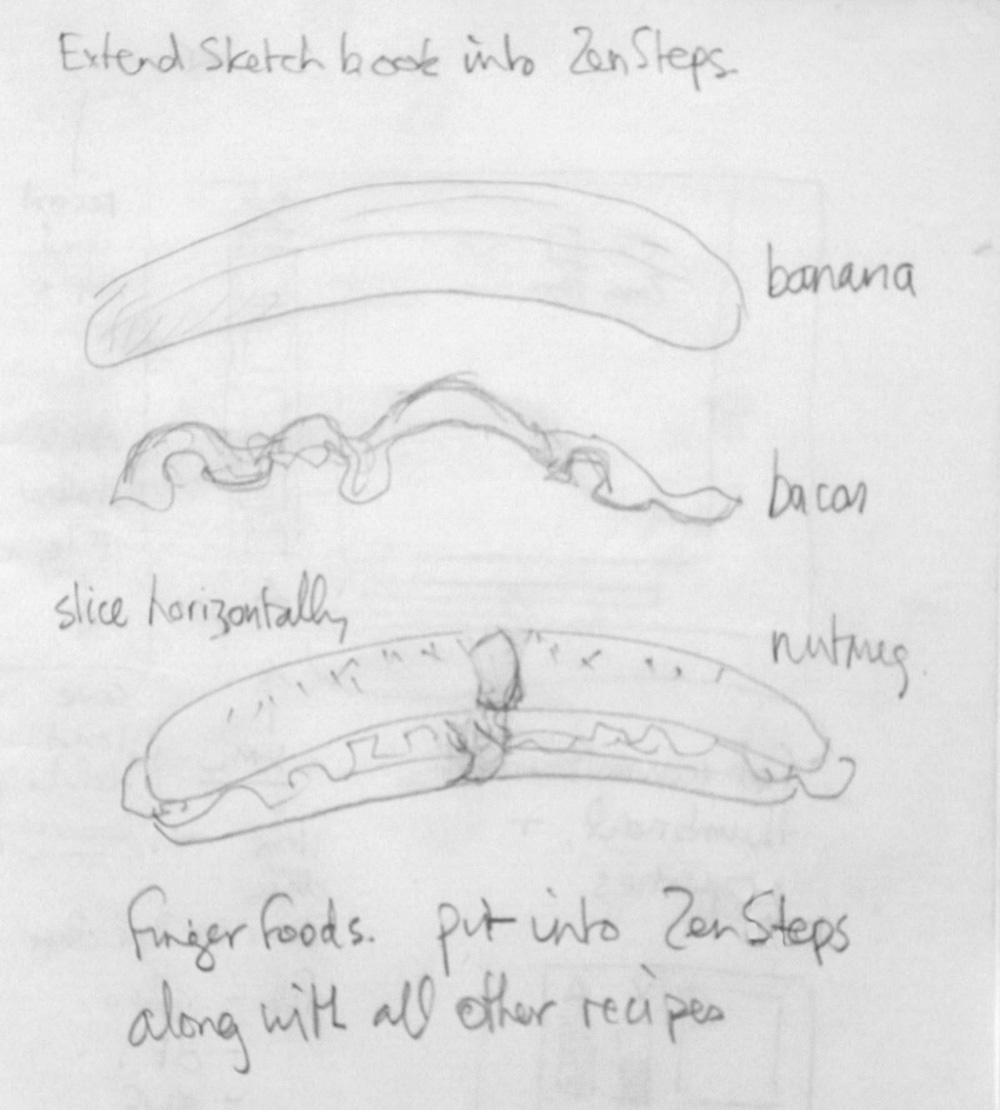 Extend Sketch book into ZenSteps
banana
bacon
slice horizontally
nutmeg.
finger foods. put into ZenSteps
along with all other recipes